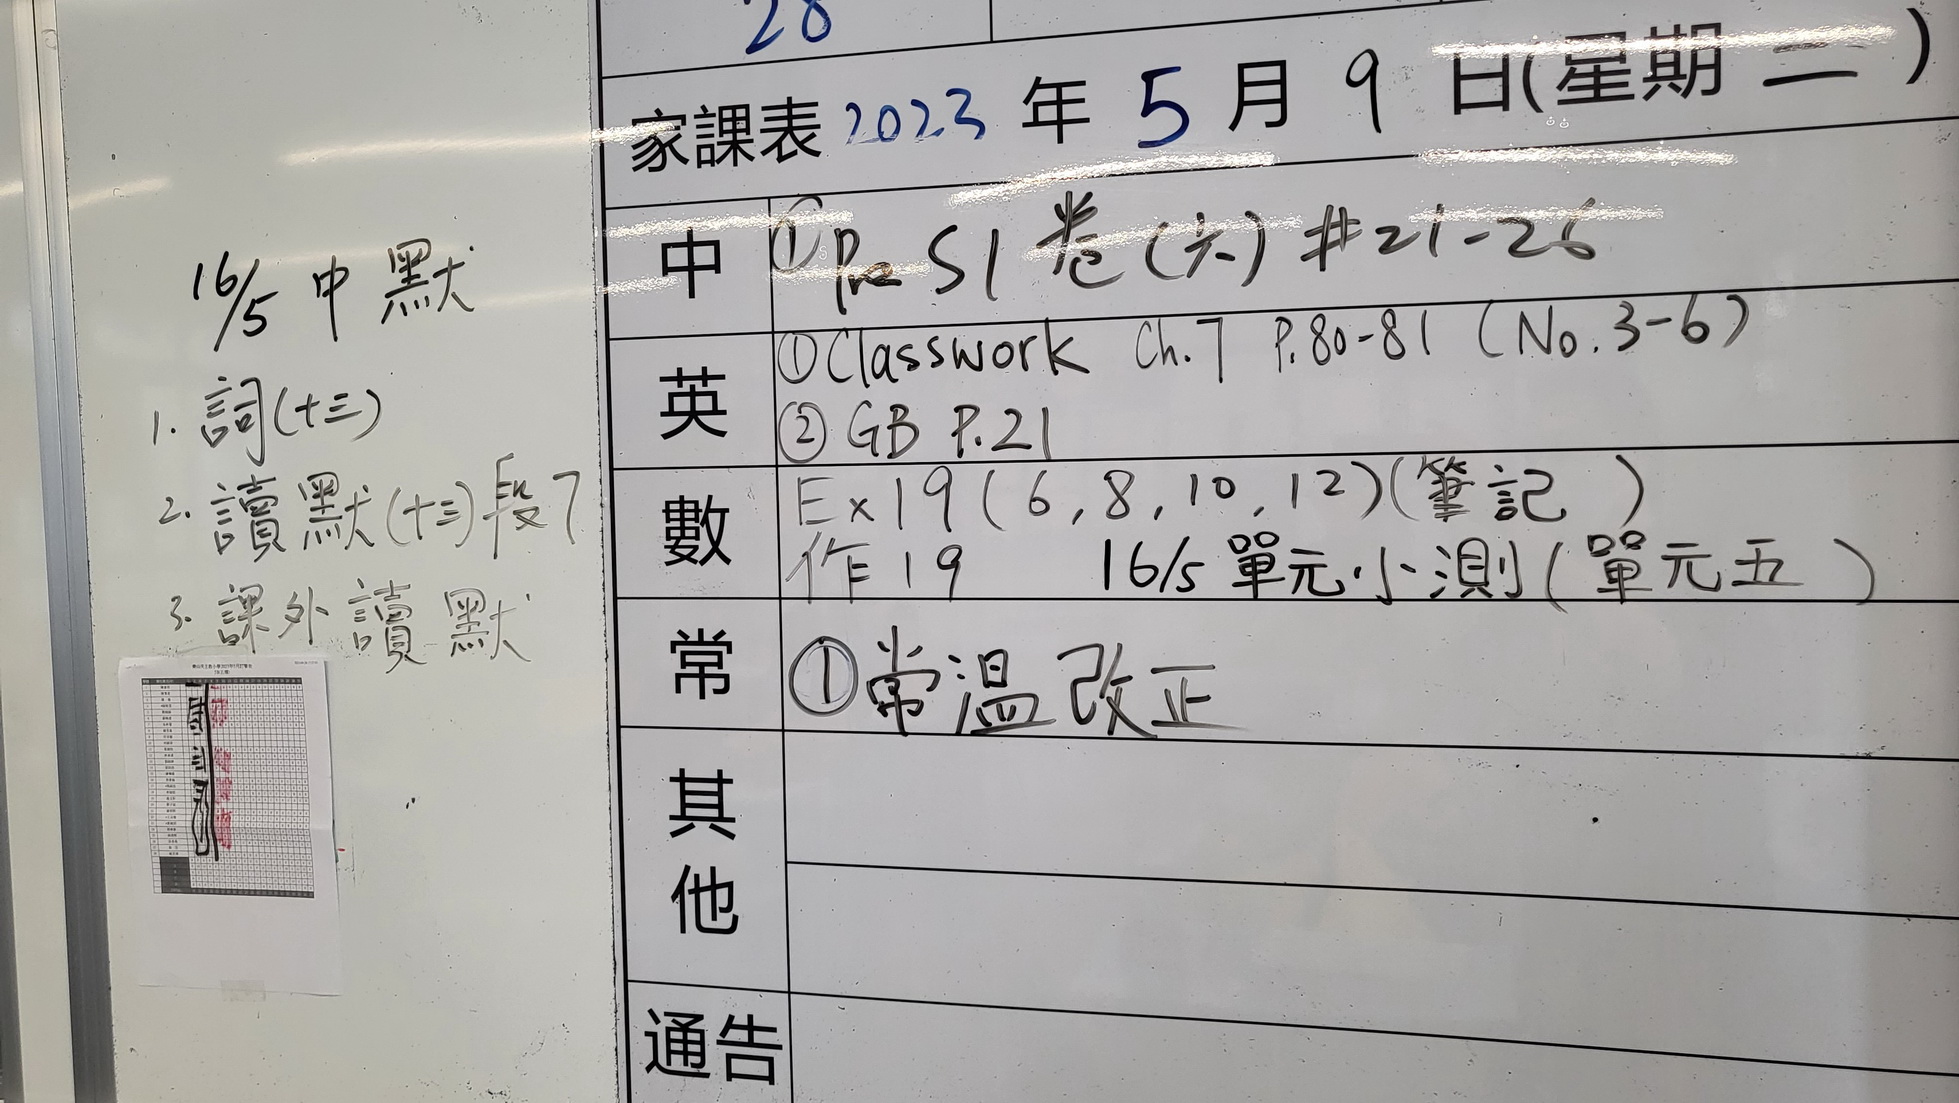 16/5 中默
1. 詞(十三)
2. 讀默(十三)段7
3. 課外讀默
28
家課表 2023 年 5 月 9 日(星期 二)
中 ①Pre S1 卷(六) #21-26
英 ①Classwork Ch.7 P.80-81 (No.3-6)
②GB P.21
數 Ex19(6,8,10,12)(筆記 )
作19 16/5單元小測(單元五 )
常 ①常溫改正
其他
通告